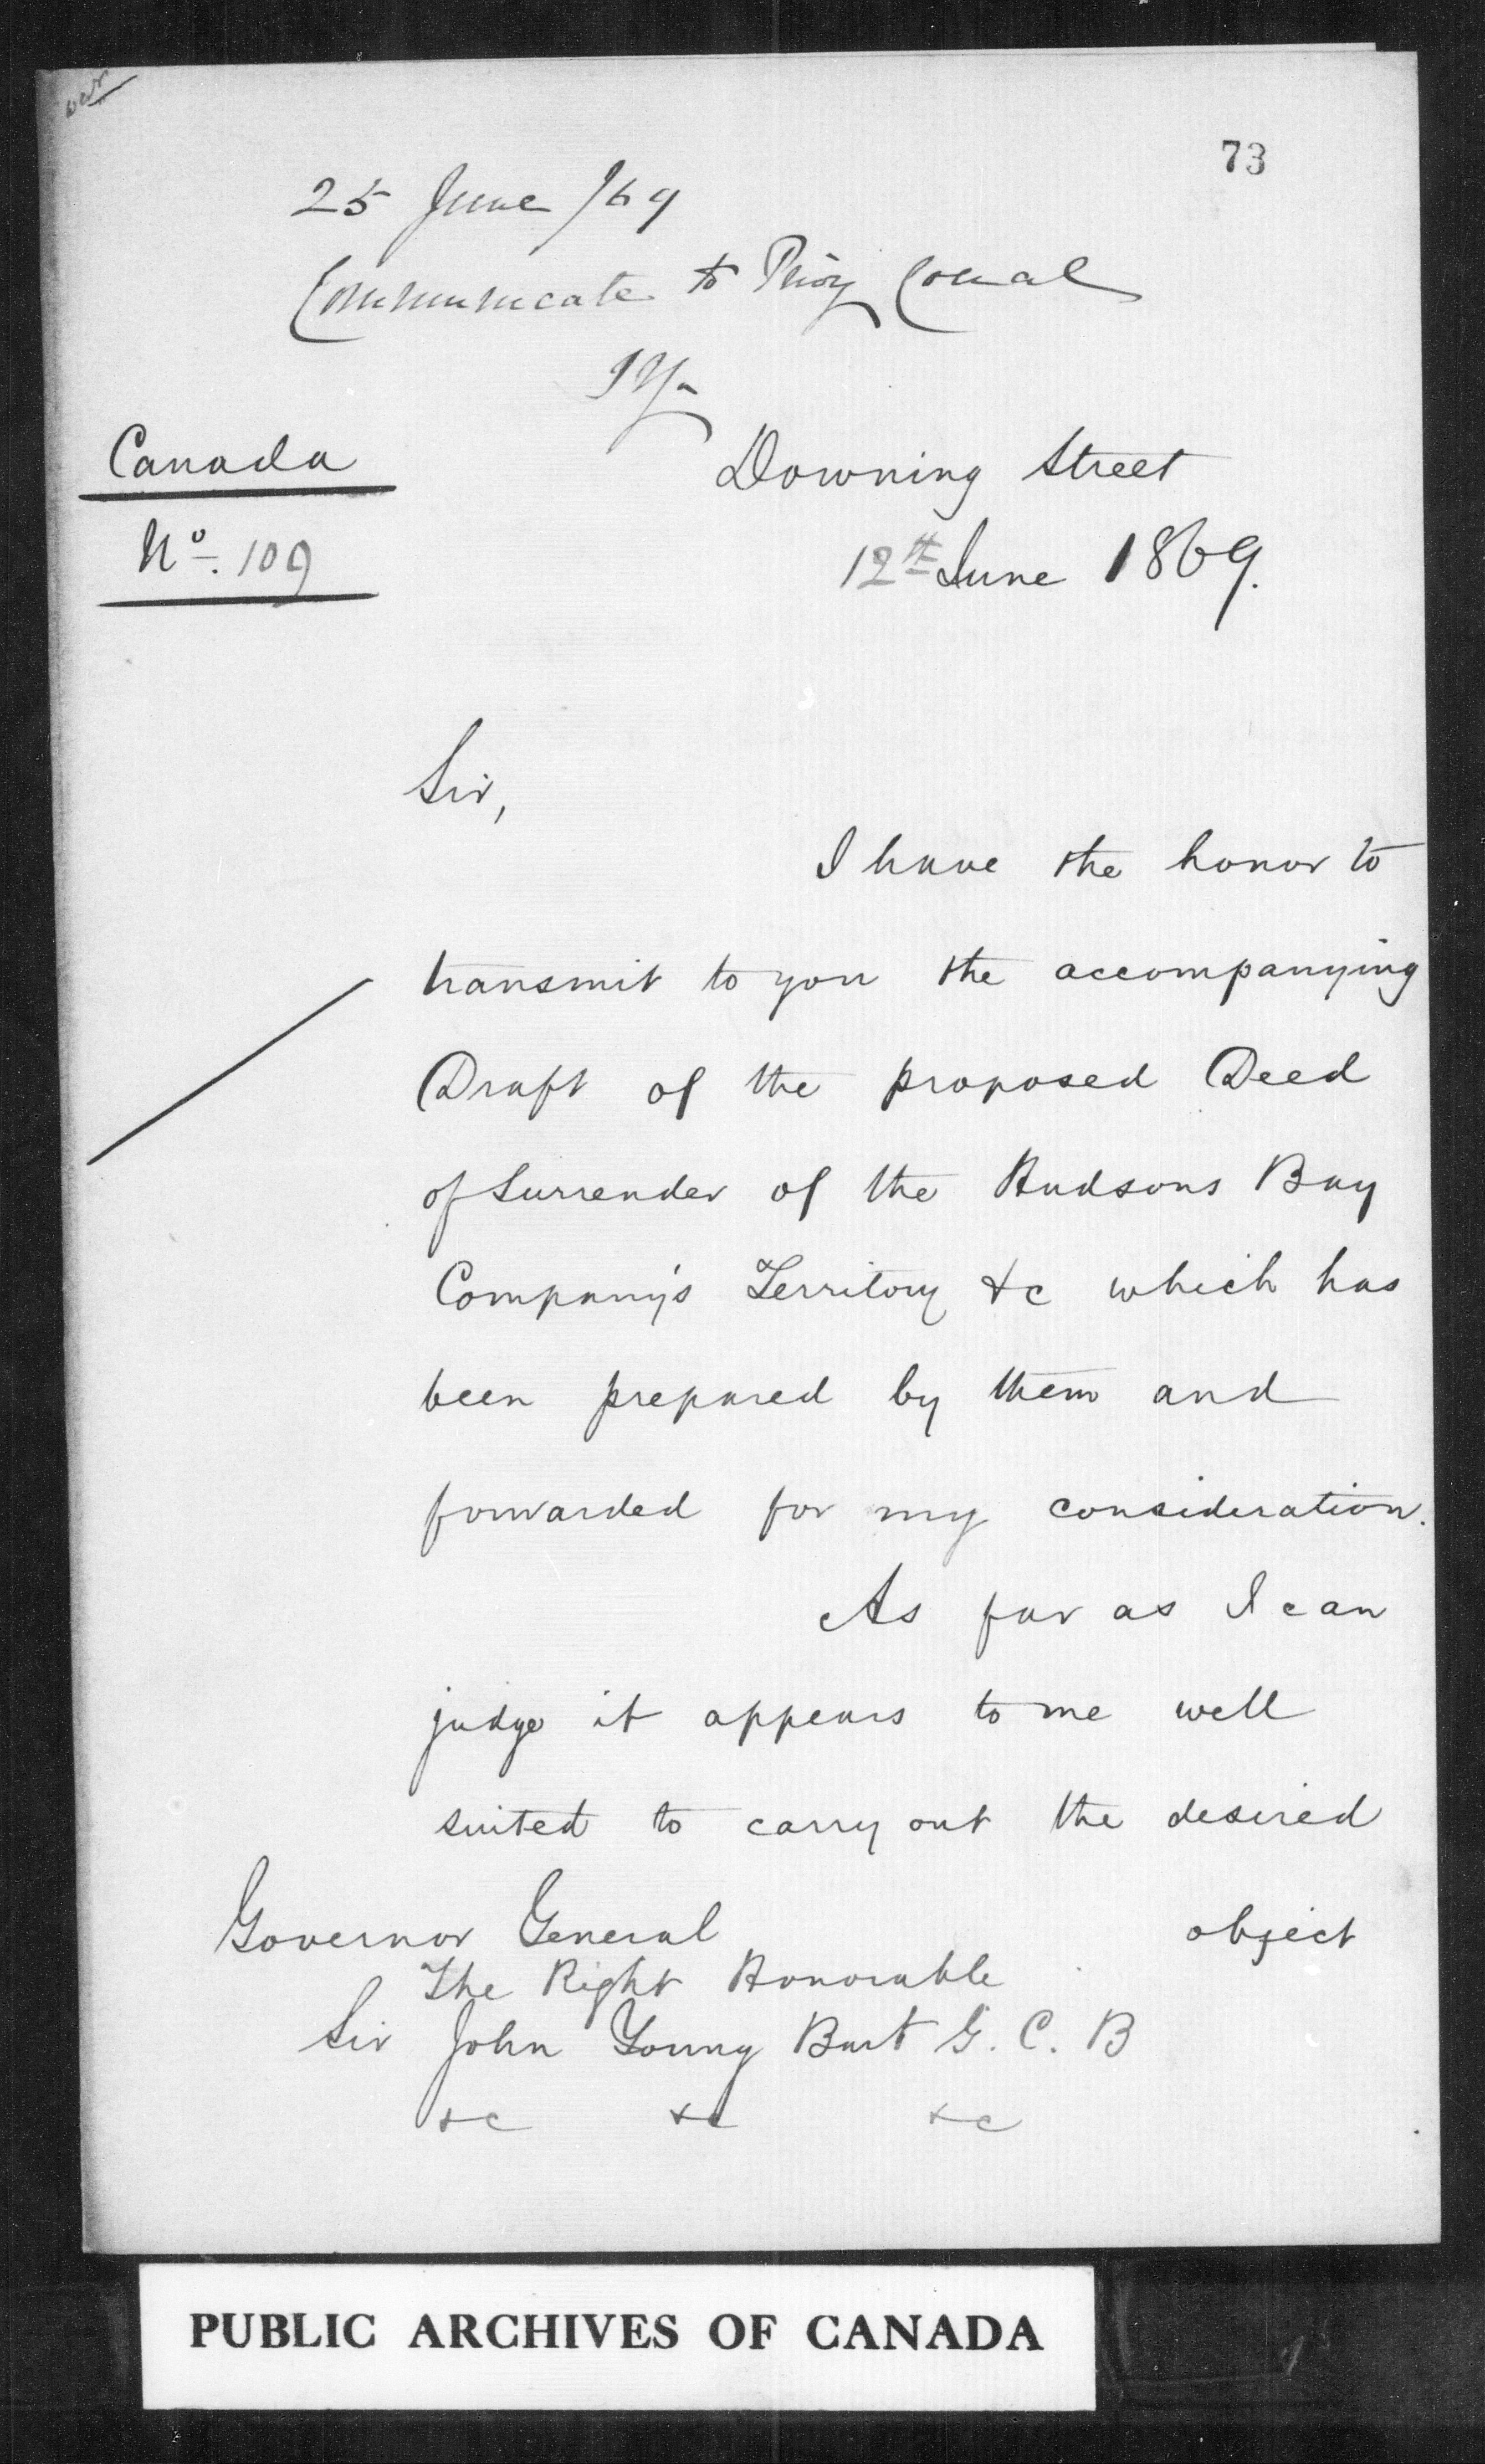 73
25 June /69
Communicate to Privy Council
JY
Canada
No. 109
Downing Street
12th June 1869.
Sir,
I have the honor to
transmit to you the accompanying
Draft of the proposed Deed
of Surrender of the Hudsons Bay
Company's Territory &c which has
been prepared by them and
forwarded for my consideration.
As far as I can
judge it appears to me well
suited to carry out the desired
object
Governor General
The Right Honorable
Sir John Young Bart G. C. B
&c &c &c
PUBLIC ARCHIVES OF CANADA